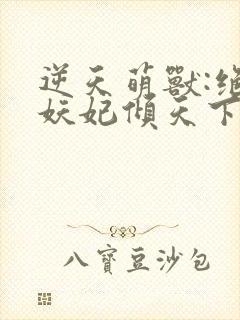 逆天萌獸:絕
妖妃傾天下
八寶豆沙包